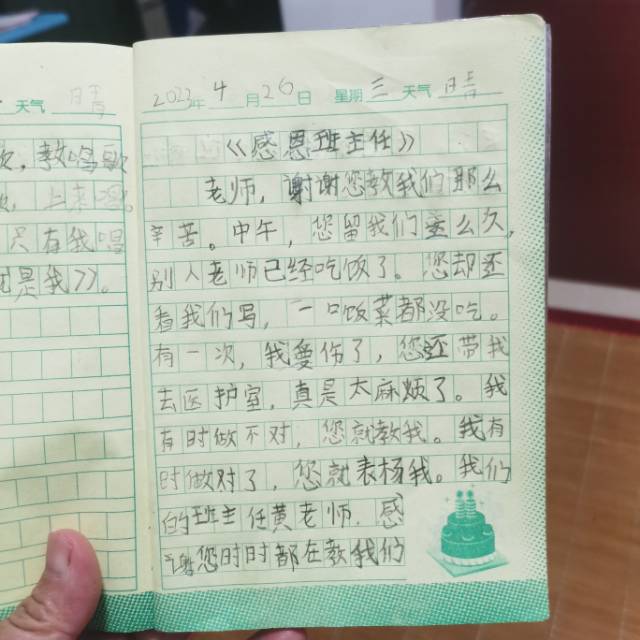 天气 晴
教唱歌
只有我唱
是我》。
2023年 4月 26日 星期三 天气 晴
《感恩班主任》
老师，谢谢您教我们那么
辛苦。中午，您留我们这么久，
别人老师已经吃饭了。您却还
看我们写，一口饭菜都没吃。
有一次，我受伤了，您还带我
去医护室，真是太麻烦了。我
有时做不对，您就教我。我有
时做对了，您就表杨我。我们
的班主任黄老师，感
谢您时时都在教我们